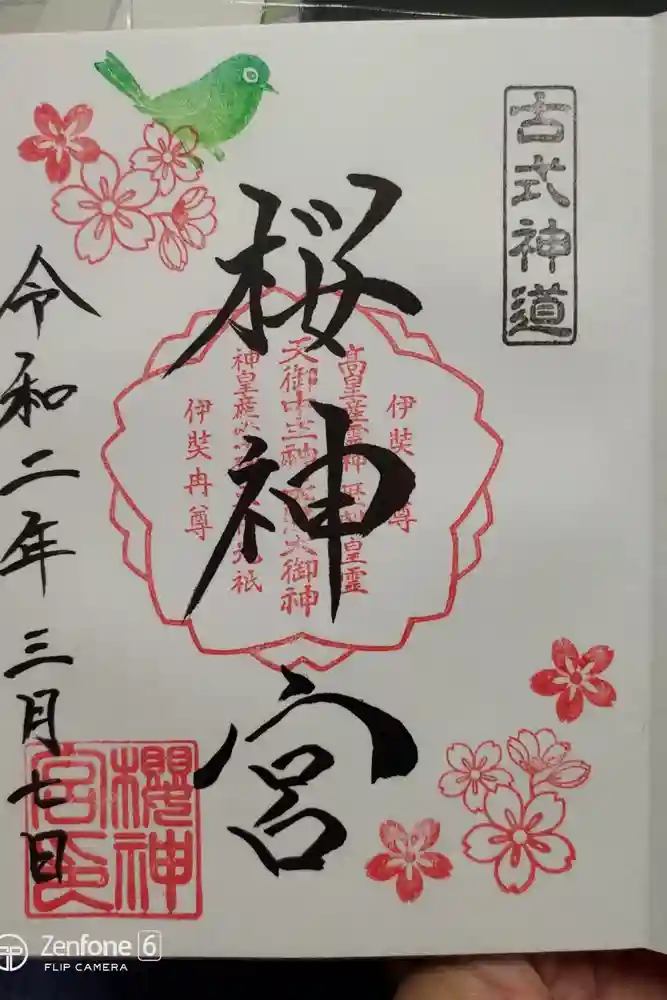 古式神道
桜神宮
伊奘
尊
高皇産霊神 歴
皇霊
天御中主神
大御神
神皇産
祇
伊奘冉尊
令和二年三月七日
櫻神
宮
Zenfone 6
FLIP CAMERA